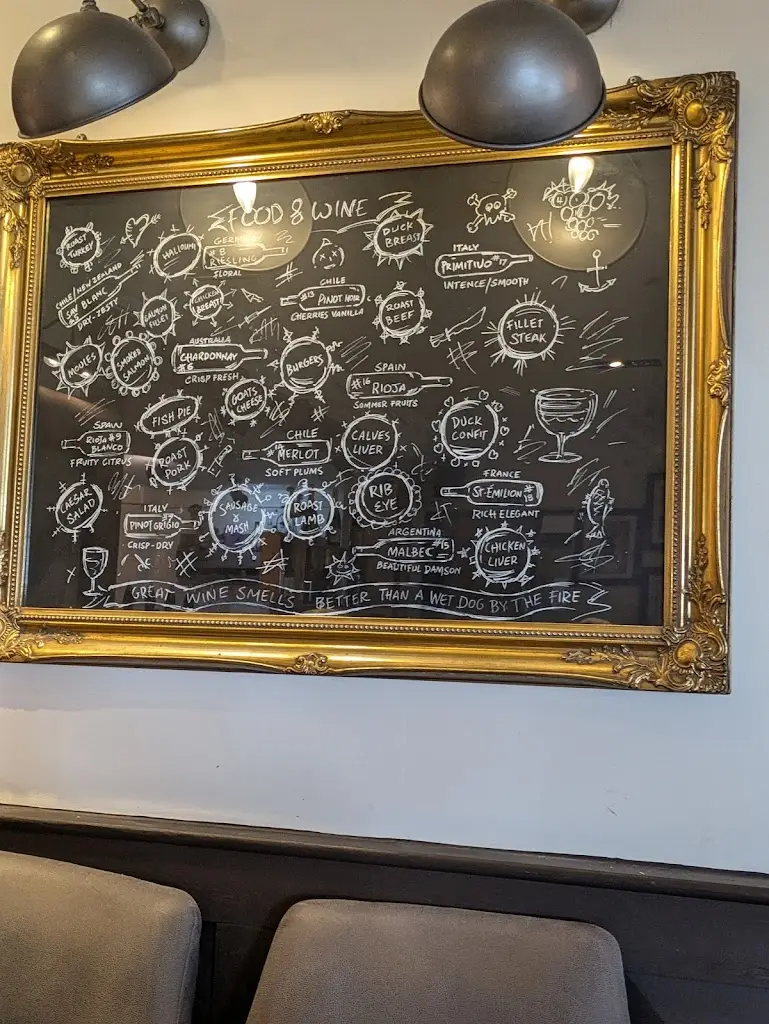 FOOD & WINE
ROAST
TURKEY
HALLOUMI
#8
RIESLING
FLORAL
DUCK
BREAST
ITALY
PRIMITIVO #17
INTENCE/SMOOTH
CHILE/NEW ZEALAND
SAV BLANC
DRY-ZESTY
SALMON
FILLET
CHICKEN
BREAST
CHILE
#13 PINOT NOIR
CHERRIES VANILLA
ROAST
BEEF
FILLET
STEAK
SMOKED
SALMON
AUSTRALIA
CHARDONNAY
#6
CRISP FRESH
BURGERS
SPAIN
#16 RIOJA
SUMMER FRUITS
GOATS
CHEESE
FISH PIE
SPAIN
RIOJA #9
BLANCO
FRUITY CITRUS
ROAST
PORK
CHILE
MERLOT
SOFT PLUMS
CALVES
LIVER
DUCK
CONFIT
CAESAR
SALAD
ITALY
PINOT GRIGIO
CRISP-DRY
SAUSAGE
&
MASH
ROAST
LAMB
RIB
EYE
FRANCE
ST-EMILION #18
RICH ELEGANT
ARGENTINA
MALBEC #15
BEAUTIFUL DAMSON
CHICKEN
LIVER
GREAT WINE SMELLS BETTER THAN A WET DOG BY THE FIRE